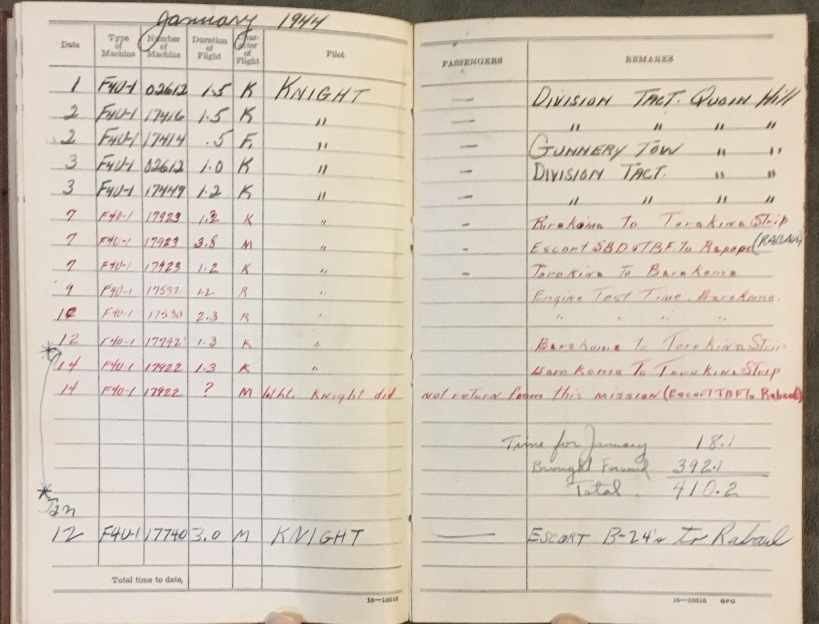 January 1944
Date Type of Machine Number of Machine Duration of Flight Character of Flight Pilot PASSENGERS REMARKS
1 F4U-1 02612 1.5 K KNIGHT — DIVISION TACT. QUOIN Hill
2 F4U-1 17416 1.5 K " — " " " "
2 F4U-1 17414 .5 F. " — GUNNERY TOW " "
3 F4U-1 02612 1.0 K " — DIVISION TACT. " "
3 F4U-1 17449 1.2 K " — " " " "
7 F4U-1 17923 1.3 K " - Barakoma To Torokina Strip
7 F4U-1 17923 3.8 M " - Escort SBD & TBF To Rapopo (RABAUL)
7 F4U-1 17923 1.2 K " - Torokina To Barakoma
9 F4U-1 17532 1.2 R " Engine Test Time. Barakoma.
10 F4U-1 17530 2.3 R " " " " "
12 F4U-1 17792 1.3 K " Barakoma To Torokina Strip
14 F4U-1 17922 1.3 K Barakoma To Torokina Strip
14 F4U-1 17922 ? M 1stLt. Knight did not return from this mission (Escort TBF To Rabaul)
Time for January 18.1
Brought Forward 392.1
Total 410.2
* Jan
12 F4U-1 17740 3.0 M KNIGHT — ESCORT B-24's to Rabaul
Total time to date,
16—18616
16—18616 GPO